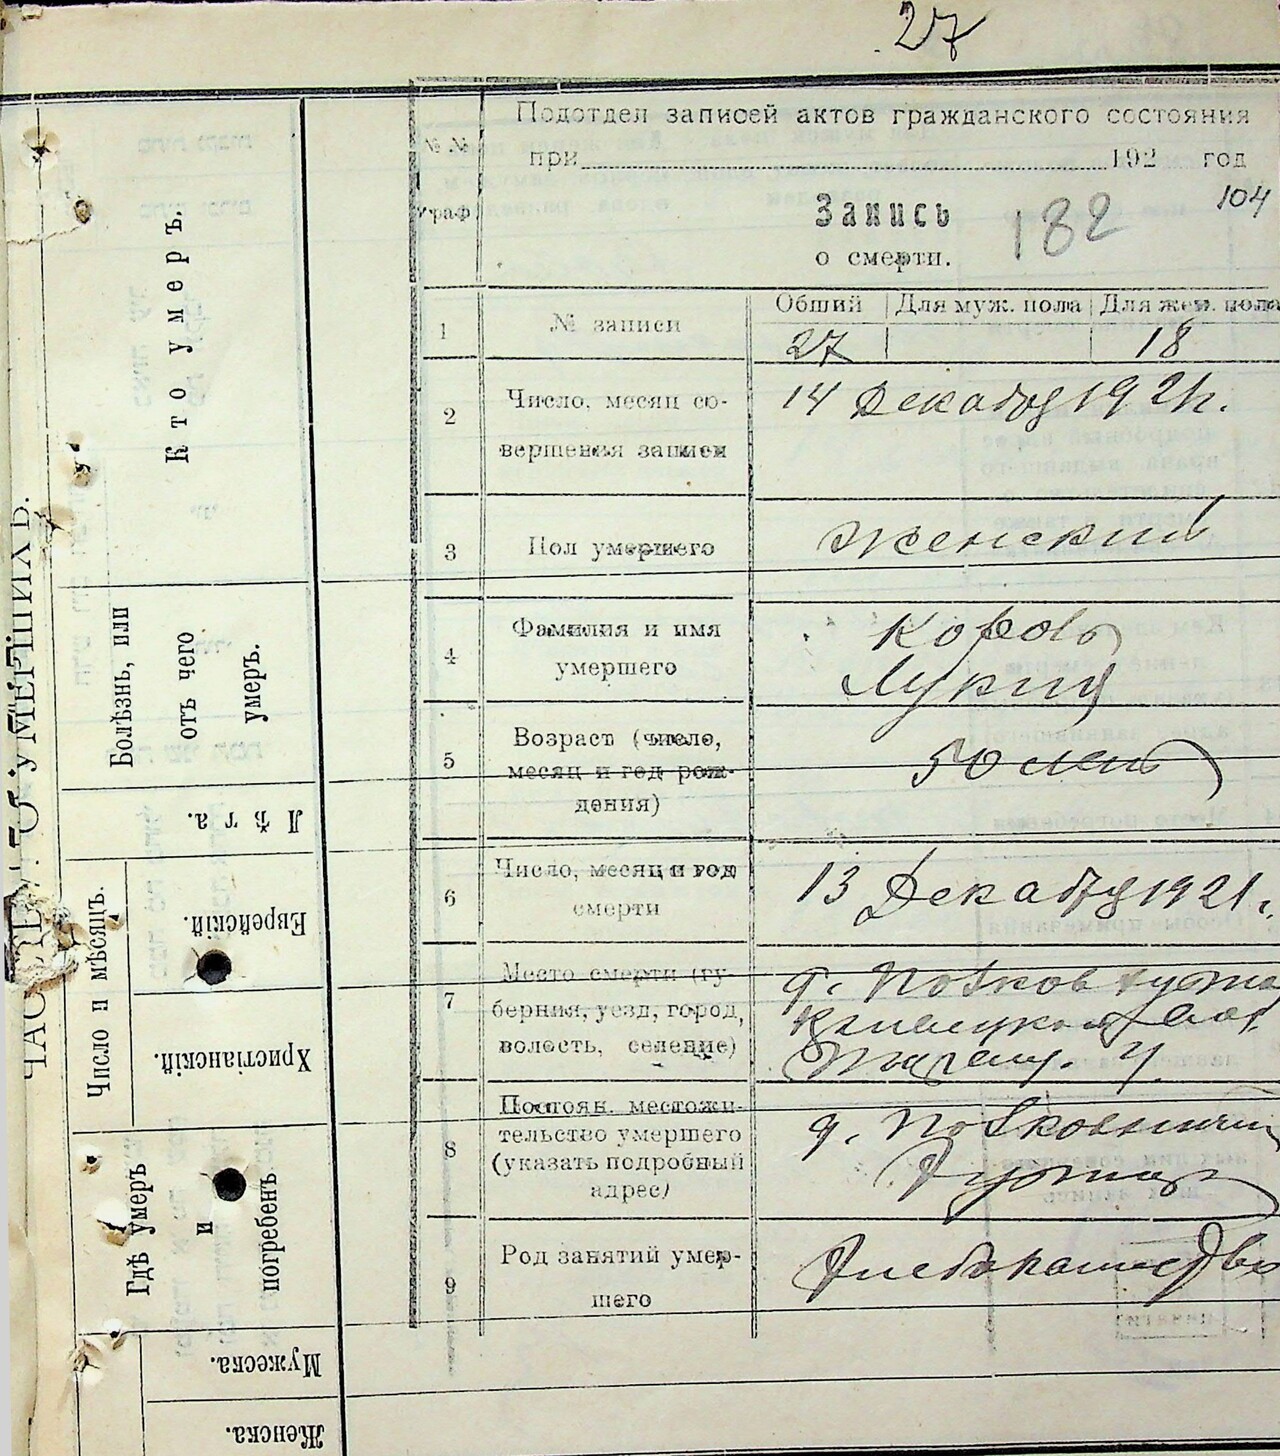 27
Подотдел записей актов гражданского состояния
при 192 год
№ № граф
Запись
182
104
о смерти.
Обший Для муж. пола Для жен. пола
1 № записи 27 18
2 Число, месяц со-
вершения записи
14 Декабря 1921 г.
3 Пол умершего Женский
4 Фамилия и имя
умершего
Король
Лукия
5 Возраст (число,
месяц и год рож-
дения)
50 лет
6 Число, месяц и год
смерти
13 Декабря 1921 г.
7 Место смерти (гу-
берния, уезд, город,
волость, селение)
8 Постоян. местожи-
тельство умершего
(указать подробный
адрес)
9 Род занятий умер-
шего
Хлебопашество
Кто умеръ.
Болѣзнь, или
отъ чего
умеръ.
Лѣта.
Число и мѣсяцъ.
Еврейскій.
Христіанскій.
Гдѣ умеръ
и
погребенъ
Мужеска.
Женска.
УМЕРШИХЪ.